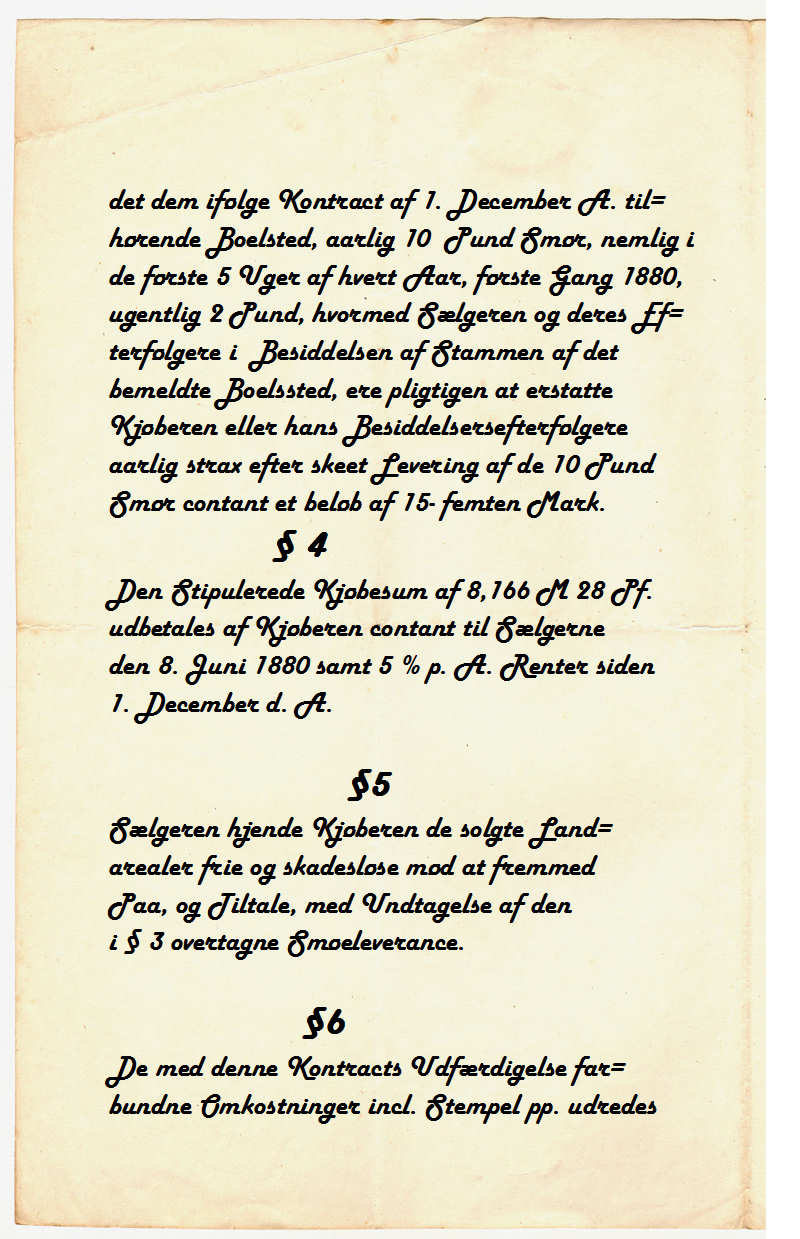 det dem ifølge Kontract af 1. December A. til=
hørende Boelsted, aarlig 10 Pund Smør, nemlig i
de første 5 Uger af hvert Aar, første Gang 1880,
ugentlig 2 Pund, hvormed Sælgeren og deres Ef=
terfølgere i Besiddelsen af Stammen af det
bemeldte Boelssted, ere pligtigen at erstatte
Kjøberen eller hans Besiddelsersefterfølgere
aarlig strax efter skeet Levering af de 10 Pund
Smør contant et beløb af 15- femten Mark.
§ 4
Den Stipulerede Kjøbesum af 8,166 M 28 Pf.
udbetales af Kjøberen contant til Sælgerne
den 8. Juni 1880 samt 5 % p. A. Renter siden
1. December d. A.
§5
Sælgeren hjende Kjøberen de solgte Land=
arealer frie og skadesløse mød at fremmed
Paa, og Tiltale, med Undtagelse af den
i § 3 overtagne Smøeleverance.
§6
De med denne Kontracts Udfærdigelse far=
bundne Omkostninger incl. Stempel pp. udredes